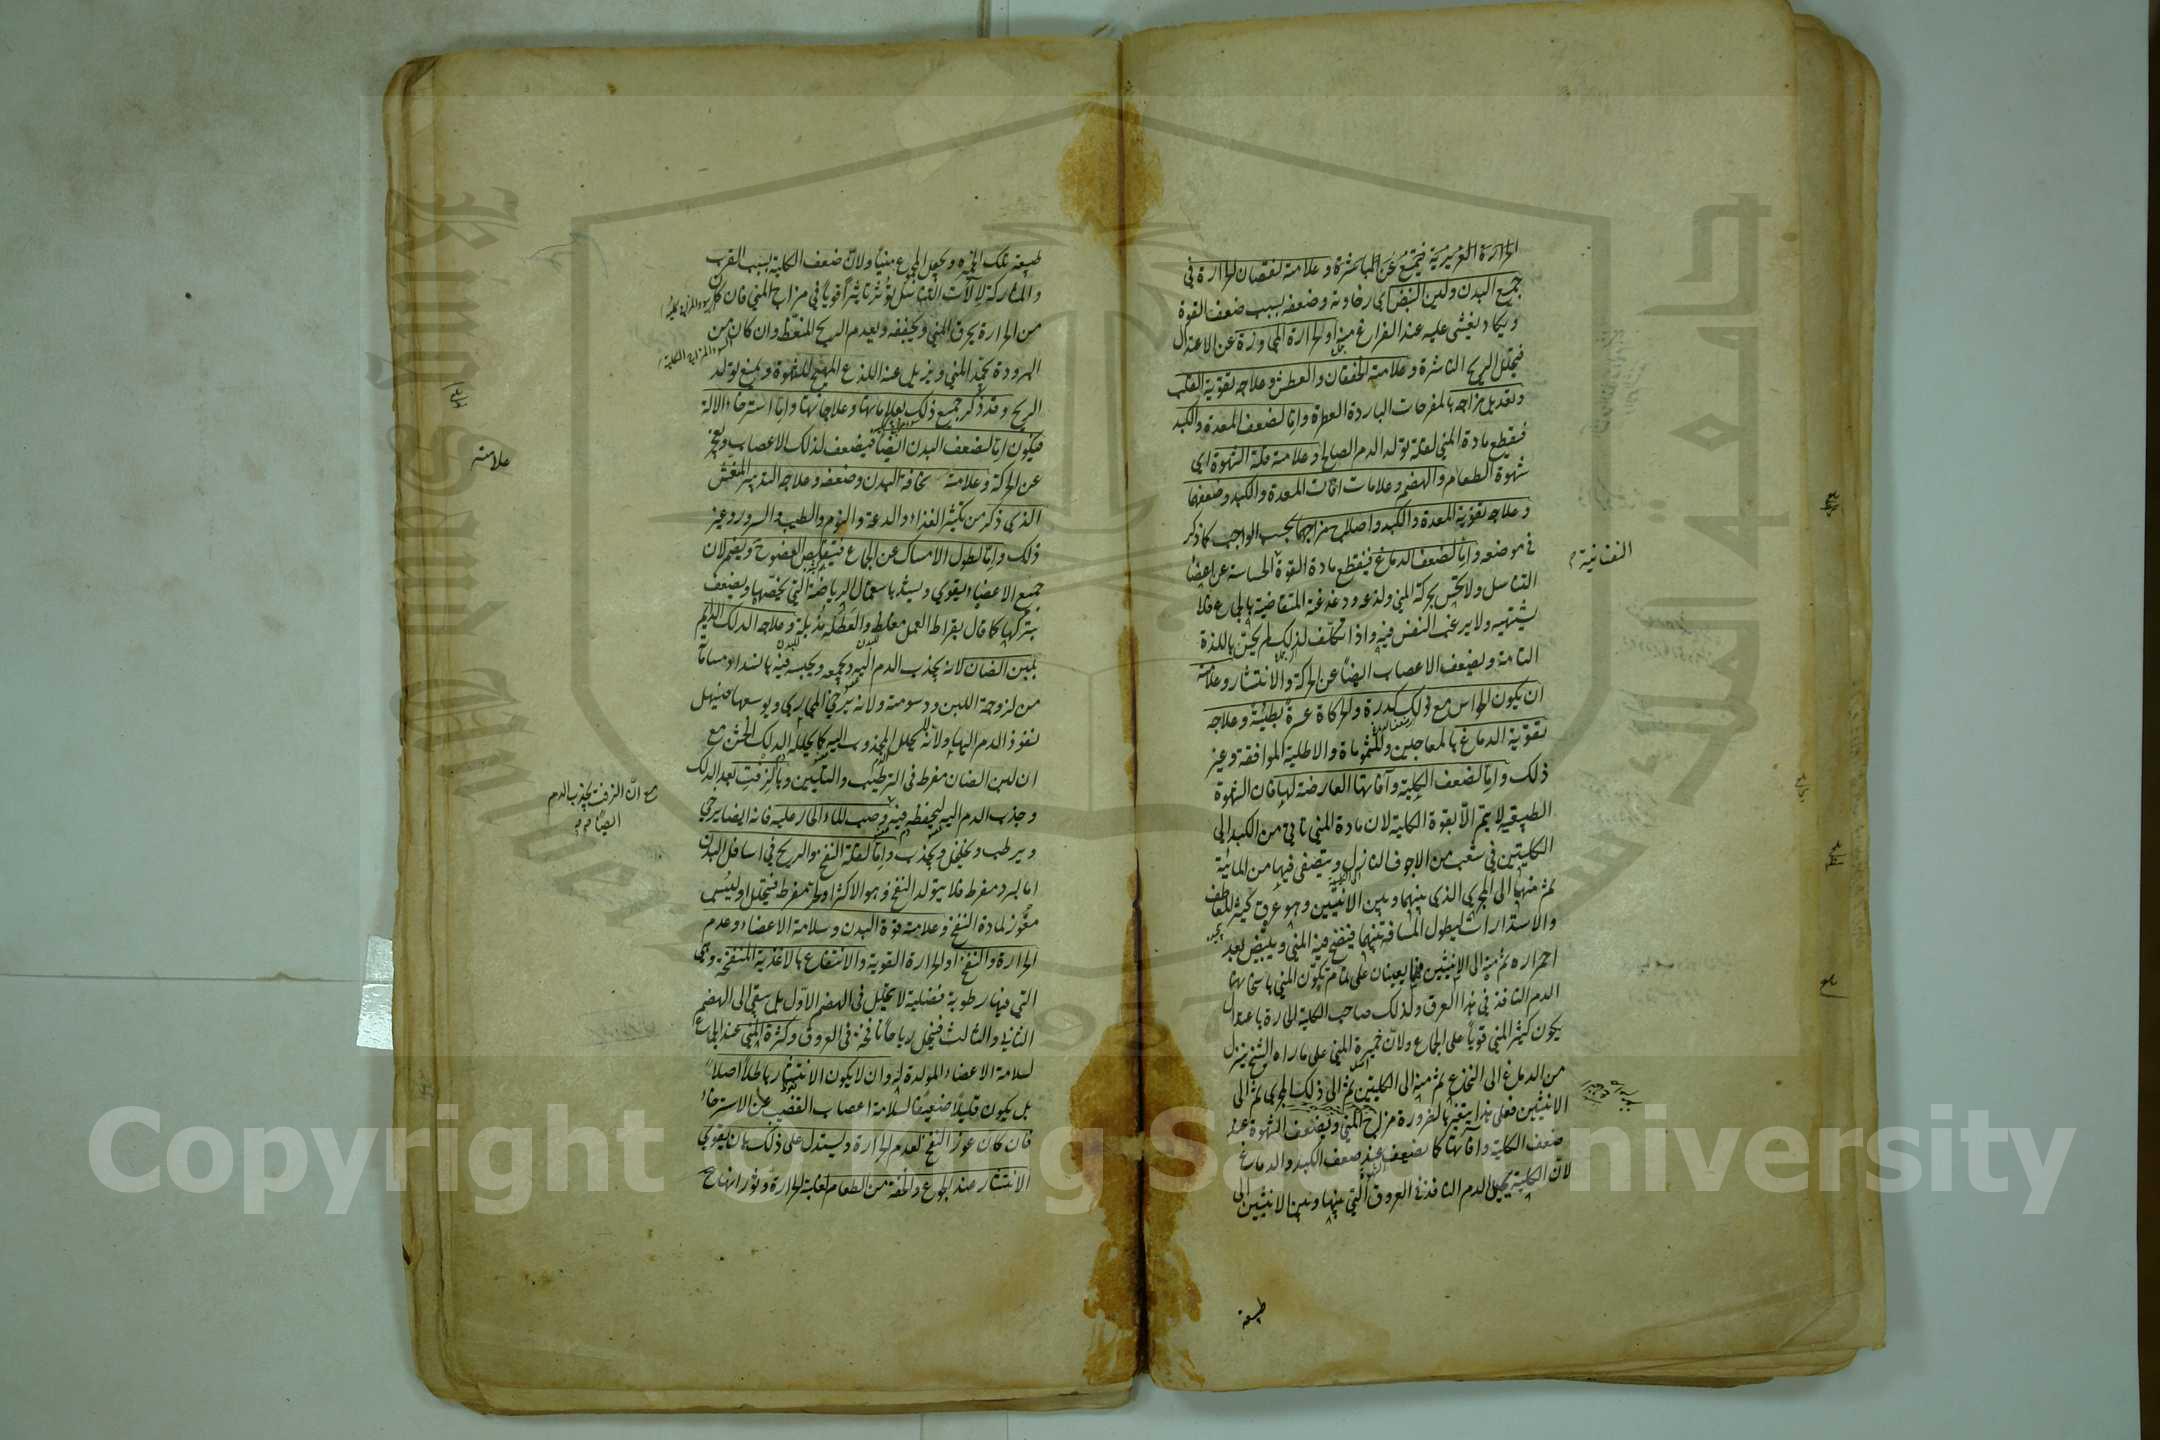 الحرارة الغريزية فيمتنع عن المباشرة وعلامته نقصان الحرارة في
جميع البدن ولين النبض اي رخاوته وضعفه بسبب ضعف القوة
ويكاد يغشى عليه عند الفراغ منه او لحرارة المجاوزة عن الاعتدال
فيحلل الريح الناشرة وعلامته الخفقان والعطش وعلاجه تقوية القلب
وتعديل مزاجه بالمفرحات الباردة العطرة واما لضعف المعدة والكبد
فيقطع مادة المني لقلة تولد الدم الصالح وعلامته قلة الشهوة اي
شهوة الطعام والهضم وعلامات افات المعدة والكبد وضعفهما
وعلاجه تقوية المعدة والكبد واصلاح مزاجهما بحسب الواجب كما ذكر
في موضعه واما لضعف الدماغ فينقطع مادة القوة الحساسة عن اعضاء
النفسانية
التناسل ولا يحس بحركة المني ولذعه ودغدغته المتقاضية بالجماع فلا
يشتهيه ولا يرغب النفس فيه واذا تكلف لذلك لم يحس باللذة
التامة ويضعف الاعصاب ايضا عن الحركة والانتشار وعلامته
ان يكون الحواس مع ذلك كدرة والحركاة عسرة بطيئة وعلاجه
تقوية الدماغ بالمعاجين والشموماة والاطلية الموافقة وغير
ذلك واما لضعف الكلية وآفاتها العارضة لها فان الشهوة
الطبيعية لا يتم الا بقوة الكلية لان مادة المني تاتي من الكبد الى
الكليتين في شعب من الاجوف النازل ويتصفى فيها من المائية
ثم منهما الى المجرى الذي بينهما وبين الانثيين وهو عرق كثير المعاطف
والاستدارات ليطول المسافة بينهما فينضج فيه المني ويبيض بعد
احمراره ثم منه الى الانثيين فهما يعينان على تمام تكون المني باسخانهما
الدم النافذ في هذا العرق ولذلك صاحب الكلية الحارة باعتدال
يكون كثير المني قويا على الجماع ولان خميرة المني على ما راه الشيخ ينزل
من الدماغ الى النخاع ثم منه الى الكليتين ثم الى ذلك المجرى ثم الى
الانثيين فعلى هذا يتغير بالضرورة مزاج المني ويضعف الشهوة عند
ضعف الكلية وافاتها كما يضعف عند ضعف الكبد والدماغ
لان الكلية يحيل الدم النافذ في العروق التي بينها وبين الانثيين الى
طبيعة
طبيعة تلك الخميرة ويجعل الجميع منيا ولان ضعف الكلية بسبب القرب
والمشاركة لآلات التناسل يؤثر تاثيرا قويا في مزاج المني فان كان
من الحرارة يحرق المني ويجففه ويعدم الريح المنعظ وان كان من
البرودة يجمد المني ويزيل عنه اللذع المهيج للشهوة ويمنع تولد
الريح وقد ذكر جميع ذلك بعلاماتها وعلاجاتها واما استرخاء الالة
فيكون اما لضعف البدن ايضا فيضعف لذلك الاعصاب ويعجز
علامته
عن الحركة وعلامته نحافة البدن وضعفه وعلاجه التدبير المنعش
الذي ذكر من تكثير الغذاء والدعة والنوم والطيب والسرور وغير
ذلك واما لطول الامساك عن الجماع فيتقلص العضو ويضمر لان
جميع الاعضاء يقوي ويشد باستعمال الرياضة التي يخصها ويضعف
بتركها كما قال بقراط العمل مغلظ والعطلة مذبلة وعلاجه الدلك الدائم
بلبن الضان لانه يجذب الدم اليه ويجمعه ويحبسه فيه بانسداد مساماته
من لزوجة اللبن ودسومته ولانه يرخي المجاري ويوسعها فيسهل
نفوذ الدم اليها ولانه لا يحلل المجذوب اليه كما يحلله الدلك الخشن مع
ان لبن الضان مفرط في الترطيب والتليين وبالزفت بعد الدلك
مع ان الزفت يجذب الدم
ايضا
وجذب الدم اليه ليحفظه فيه وصب الماء الحار عليه فانه ايضا يرخي
ويرطب ويخلخل ويجذب واما لقلة النفخ والريح في اسافل البدن
اما لبرد مفرط فلا يتولد النفخ وهو الاكثر او لحر مفرط فيتحلل او ليبس
معوز لمادة النفخ وعلامته قوة البدن وسلامة الاعضاء وعدم
الحرارة والنفخ او الحرارة القوية والانتفاع بالاغذية المنفخة وهي
التي فيها رطوبة فضلية لا يتحلل في الهضم الاول بل يبقى الى الهضم
الثاني والثالث فيتحلل رياحا نافخة في العروق وكثرة المني عند الجماع
لسلامة الاعضاء المولدة له وان لا يكون الانتشار باطلا اصلا
بل يكون قليلا ضعيفا لسلامة اعصاب القضيب عن الاسترخاء
فان كان عوز النفخ لعدم الحرارة ويستدل على ذلك بان يقوي
الانتشار عند الجوع والخفة من الطعام لغلبة الحرارة وثورانها ح
Copyright © King Saud University
جامعة الملك سعود
King Saud University